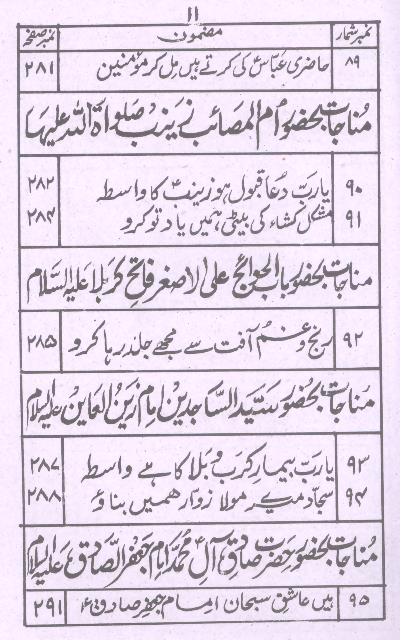 ۱۱
نمبر شمار مضمون نمبر صفحہ
۸۹ حاضری عباسؑ کی کرتے ہیں مل کر مومنین ۲۸۱
مُناجات بحضور اُم المصائب زینب صلواۃ اللہ علیہا
۹۰ یا ربّ دُعا قبول ہو زینبؑ کا واسطہ ۲۸۲
۹۱ مشکل کشاء کی بیٹی ہمیں یاد تو کرو ۲۸۴
مُناجات بحضور باب الحوائج علی الاصغر فاتح کربلا علیہ السلام
۹۲ رنج و غم و آفت سے مجھے جلد رہا کرو ۲۸۵
مُناجات بحضور سیّد الساجدین امام زین العابدین علیہ السلام
۹۳ یا ربّ بیمارِ کرب و بلا کا ہے واسطہ ۲۸۷
۹۴ سجادؑ میرے مولا زوار ہمیں بناؤ ۲۸۸
مُناجات بحضور حضرت صادق آلِ محمدؐ امام جعفر الصّادقؑ علیہ السلام
۹۵ ہیں عاشقِ سبحان امام جعفر صادقؑ ۲۹۱